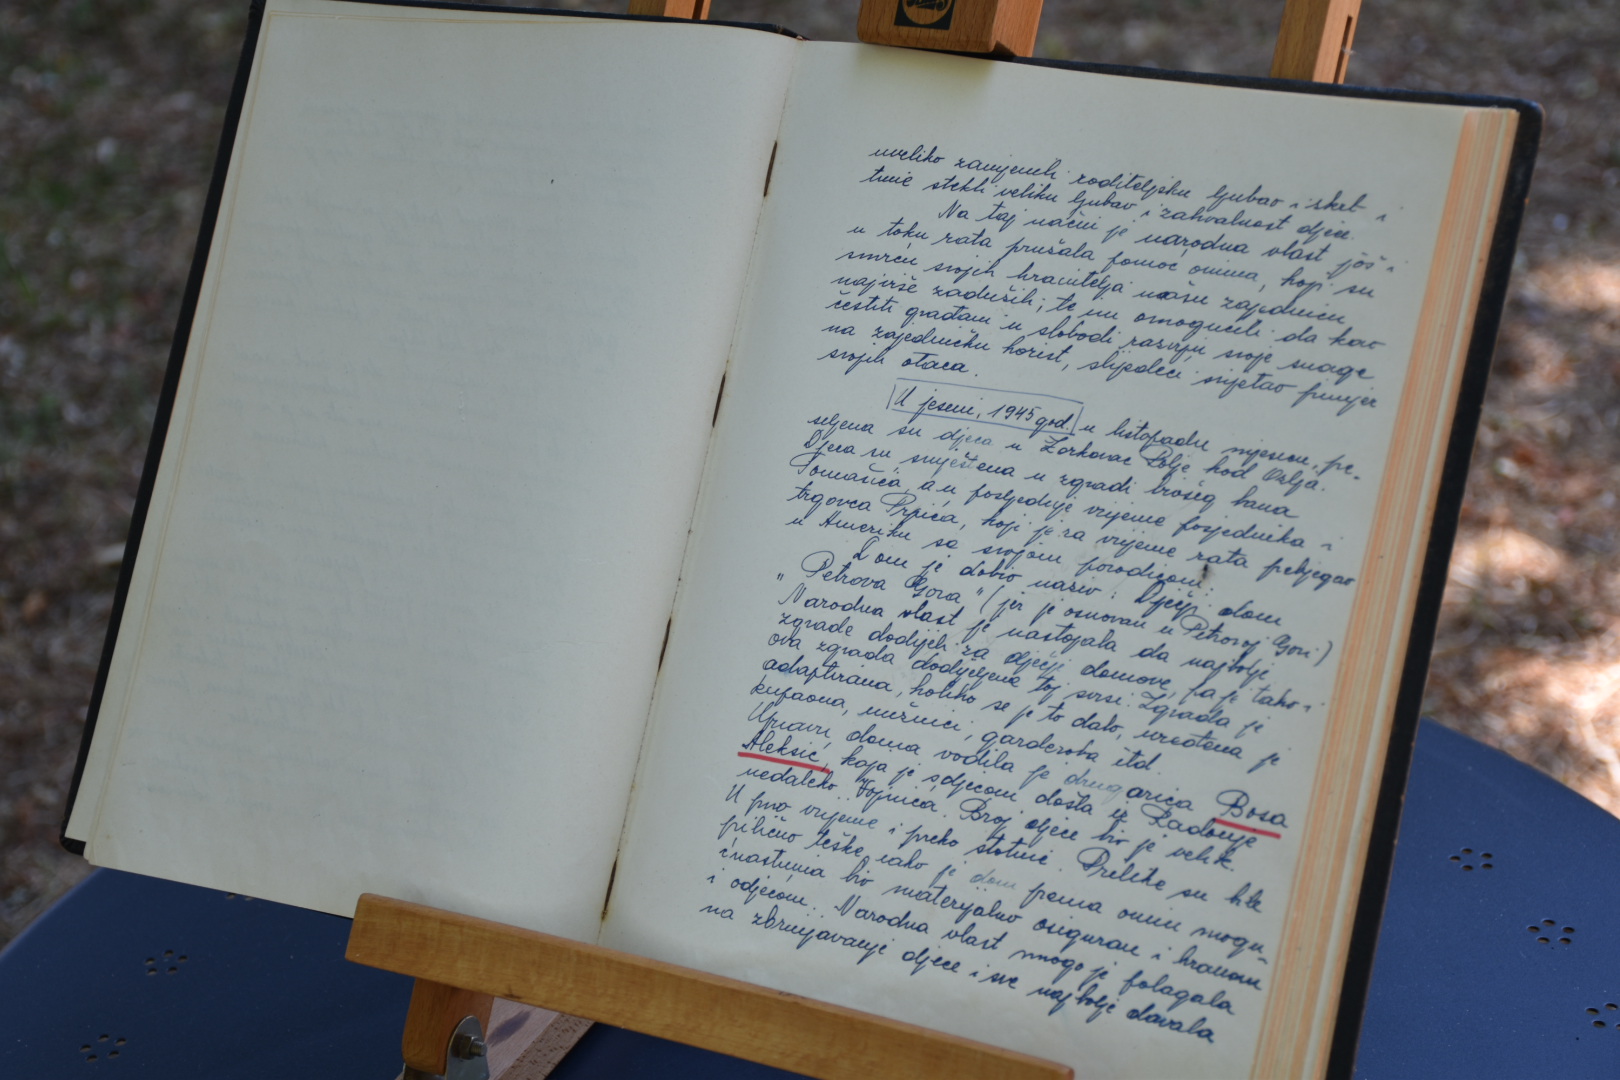 uveliko zamjenili roditeljsku ljubav i skrb i
time stekli veliku ljubav i zahvalnost djece.
Na taj način je narodna vlast još
u toku rata pružala pomoć onima, koji su
smrću svojih hranitelja našu zajednicu
najviše zadužili; te im omogućili da kao
čestiti građani u slobodi razviju svoje snage
na zajedničku korist, slijedeći svijetao primjer
svojih otaca.
U jeseni, 1945 god. u listopadu mjesecu, pre-
seljena su djeca u Zorkovac Polje kod Ozlja.
Djeca su smještena u zgradi bivšeg bana
Tomašića, a u posljednje vrijeme posjednika i
trgovca Prpića, koji je za vrijeme rata pobjegao
u Ameriku sa svojom porodicom.
Dom je dobio naziv: Dječji dom
"Petrova Gora" (jer je osnovan u Petrovoj Gori.)
Narodna vlast je nastojala da najbolje
zgrade dodijeli za dječji domove, pa je tako i
ova zgrada dodijeljena toj svrsi. Zgrada je
adaptirana, koliko se je to dalo, uređena je
kupaona, umivaonici, garderoba itd.
Upravu doma vodila je drugarica Bosa
Aleksić, koja je s djecom došla iz Radonje
nedaleko Vojnića. Broj djece bio je velik.
U prvo vrijeme i preko stotinu. Prilike su bile
prilično teške, iako je dom prema onim mogu-
ćnostima bio materijalno osiguran i hranom
i odjećom. Narodna vlast mnogo je polagala
na zbrinjavanje djece i sve najbolje davala